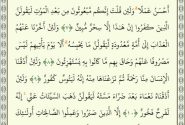 أَحْسَنُ عَمَلًا ۗ وَلَئِن قُلْتَ إِنَّكُم مَّبْعُوثُونَ مِن بَعْدِ الْمَوْتِ لَيَقُولَنَّ
الَّذِينَ كَفَرُوا إِنْ هَٰذَا إِلَّا سِحْرٌ مُّبِينٌ ﴿٧﴾ وَلَئِنْ أَخَّرْنَا عَنْهُمُ
الْعَذَابَ إِلَىٰ أُمَّةٍ مَّعْدُودَةٍ لَّيَقُولُنَّ مَا يَحْبِسُهُ ۗ أَلَا يَوْمَ يَأْتِيهِمْ لَيْسَ
مَصْرُوفًا عَنْهُمْ وَحَاقَ بِهِم مَّا كَانُوا بِهِ يَسْتَهْزِئُونَ ﴿٨﴾ وَلَئِنْ أَذَقْنَا
الْإِنسَانَ مِنَّا رَحْمَةً ثُمَّ نَزَعْنَاهَا مِنْهُ إِنَّهُ لَيَئُوسٌ كَفُورٌ ﴿٩﴾ وَلَئِنْ
أَذَقْنَاهُ نَعْمَاءَ بَعْدَ ضَرَّاءَ مَسَّتْهُ لَيَقُولَنَّ ذَهَبَ السَّيِّئَاتُ عَنِّي ۚ إِنَّهُ
لَفَرِحٌ فَخُورٌ ﴿١٠﴾ إِلَّا الَّذِينَ صَبَرُوا وَعَمِلُوا الصَّالِحَاتِ أُولَٰئِكَ